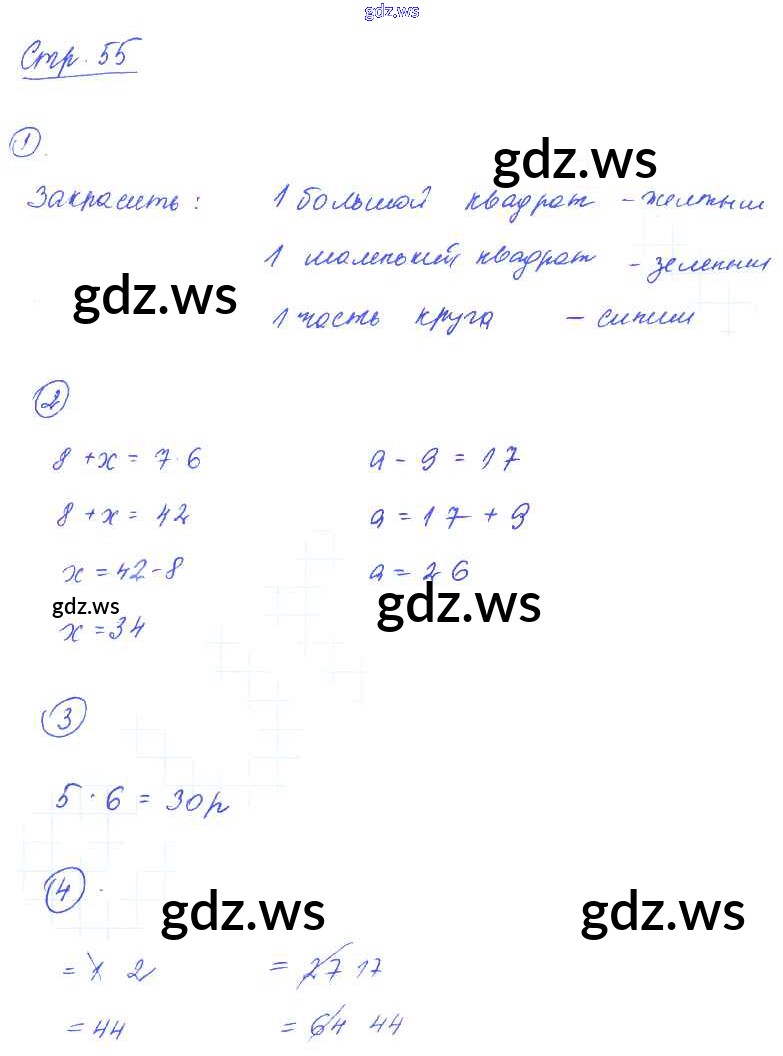 gdz.ws
Стр. 55
1.
gdz.ws
Закрасить: 1 большой квадрат - желтым
1 маленький квадрат - зеленым
gdz.ws
1 часть круга - синим
2
8 + x = 7·6 a - 9 = 17
8 + x = 42 a = 17 + 9
x = 42 - 8 a = 26
gdz.ws gdz.ws
x = 34
3
5 · 6 = 30 р
4.
gdz.ws gdz.ws
= 1 2 = 27 17
= 44 = 64 44